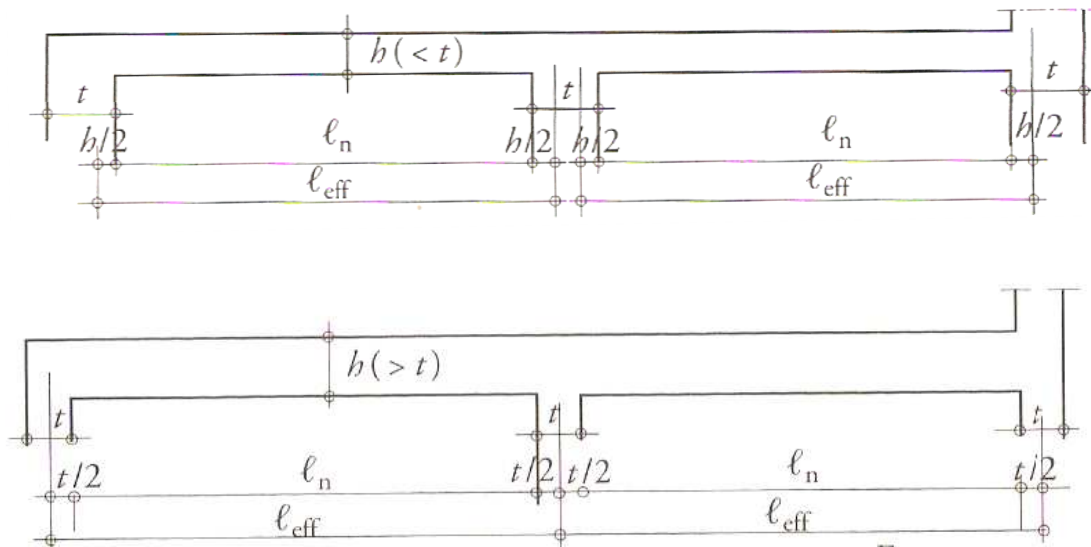 h(<t)
t t t
h/2 ℓn h/2 h/2 ℓn h/2
ℓeff ℓeff
h(>t)
t t t
t/2 ℓn t/2 t/2 ℓn t/2
ℓeff ℓeff